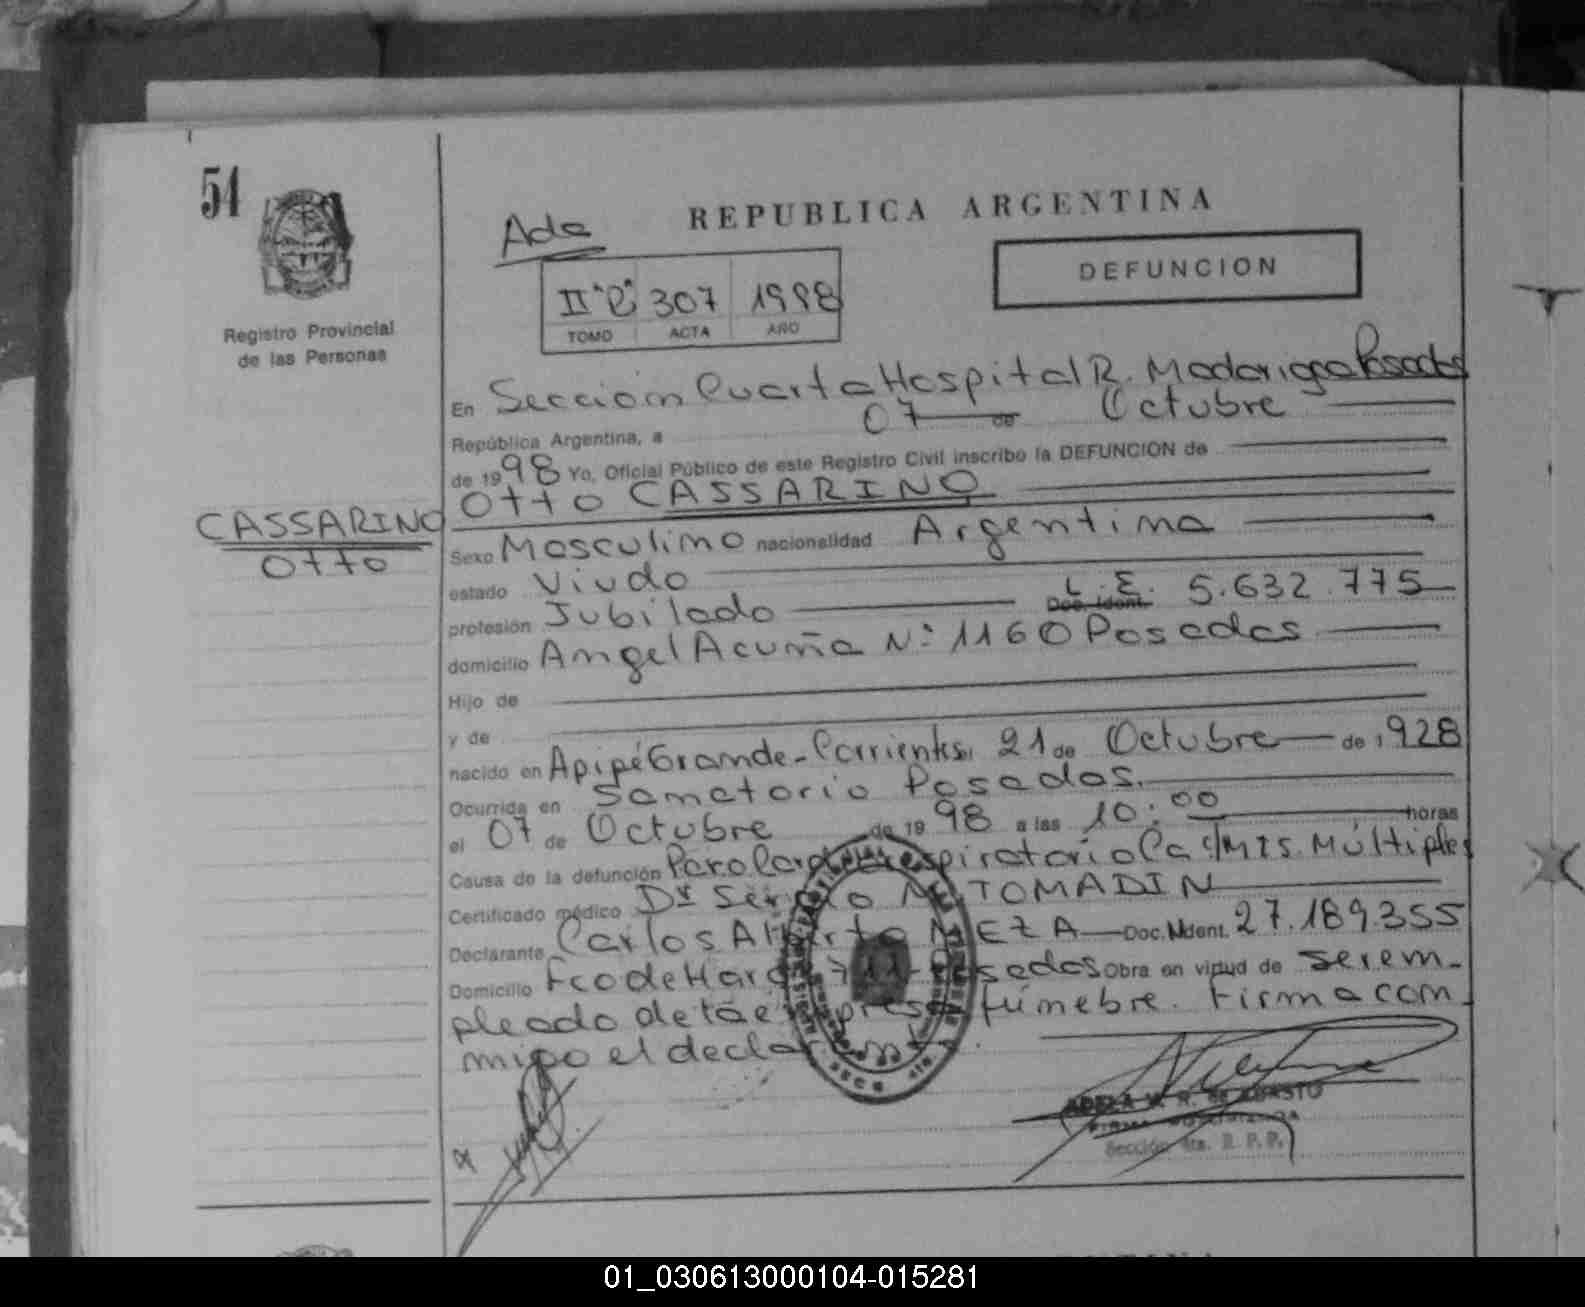 51
Registro Provincial
de las Personas
REPUBLICA ARGENTINA
DEFUNCION
II "C" 307 1998
TOMO ACTA AÑO
En Sección Cuarta Hospital R. Madariaga Posadas
República Argentina, a 07 de Octubre
de 1998 Yo, Oficial Público de este Registro Civil inscribo la DEFUNCION de
Otto CASSARINO
CASSARINO
Otto
Sexo Masculino nacionalidad Argentina
estado Viudo
profesión Jubilado Doc. Ident. L.E. 5.632.775
domicilio Angel Acuña Nº 1160 Posadas
Hijo de
y de
nacido en Apipé Grande - Corrientes, 21 de Octubre de 1928
Ocurrida en Sanatorio Posadas.
el 07 de Octubre de 1998 a las 10:00 horas
Causa de la defunción Múltiples
Certificado médico Dr Sergio TOMADIN
Declarante Carlos Alberto MEZA Doc. Ident. 27.189.355
Domicilio Fco de Haro Posadas Obra en virtud de ser em-
pleado de fúnebre. Firma con
migo el
Sección 4ta. R. P. P.
01_030613000104-015281